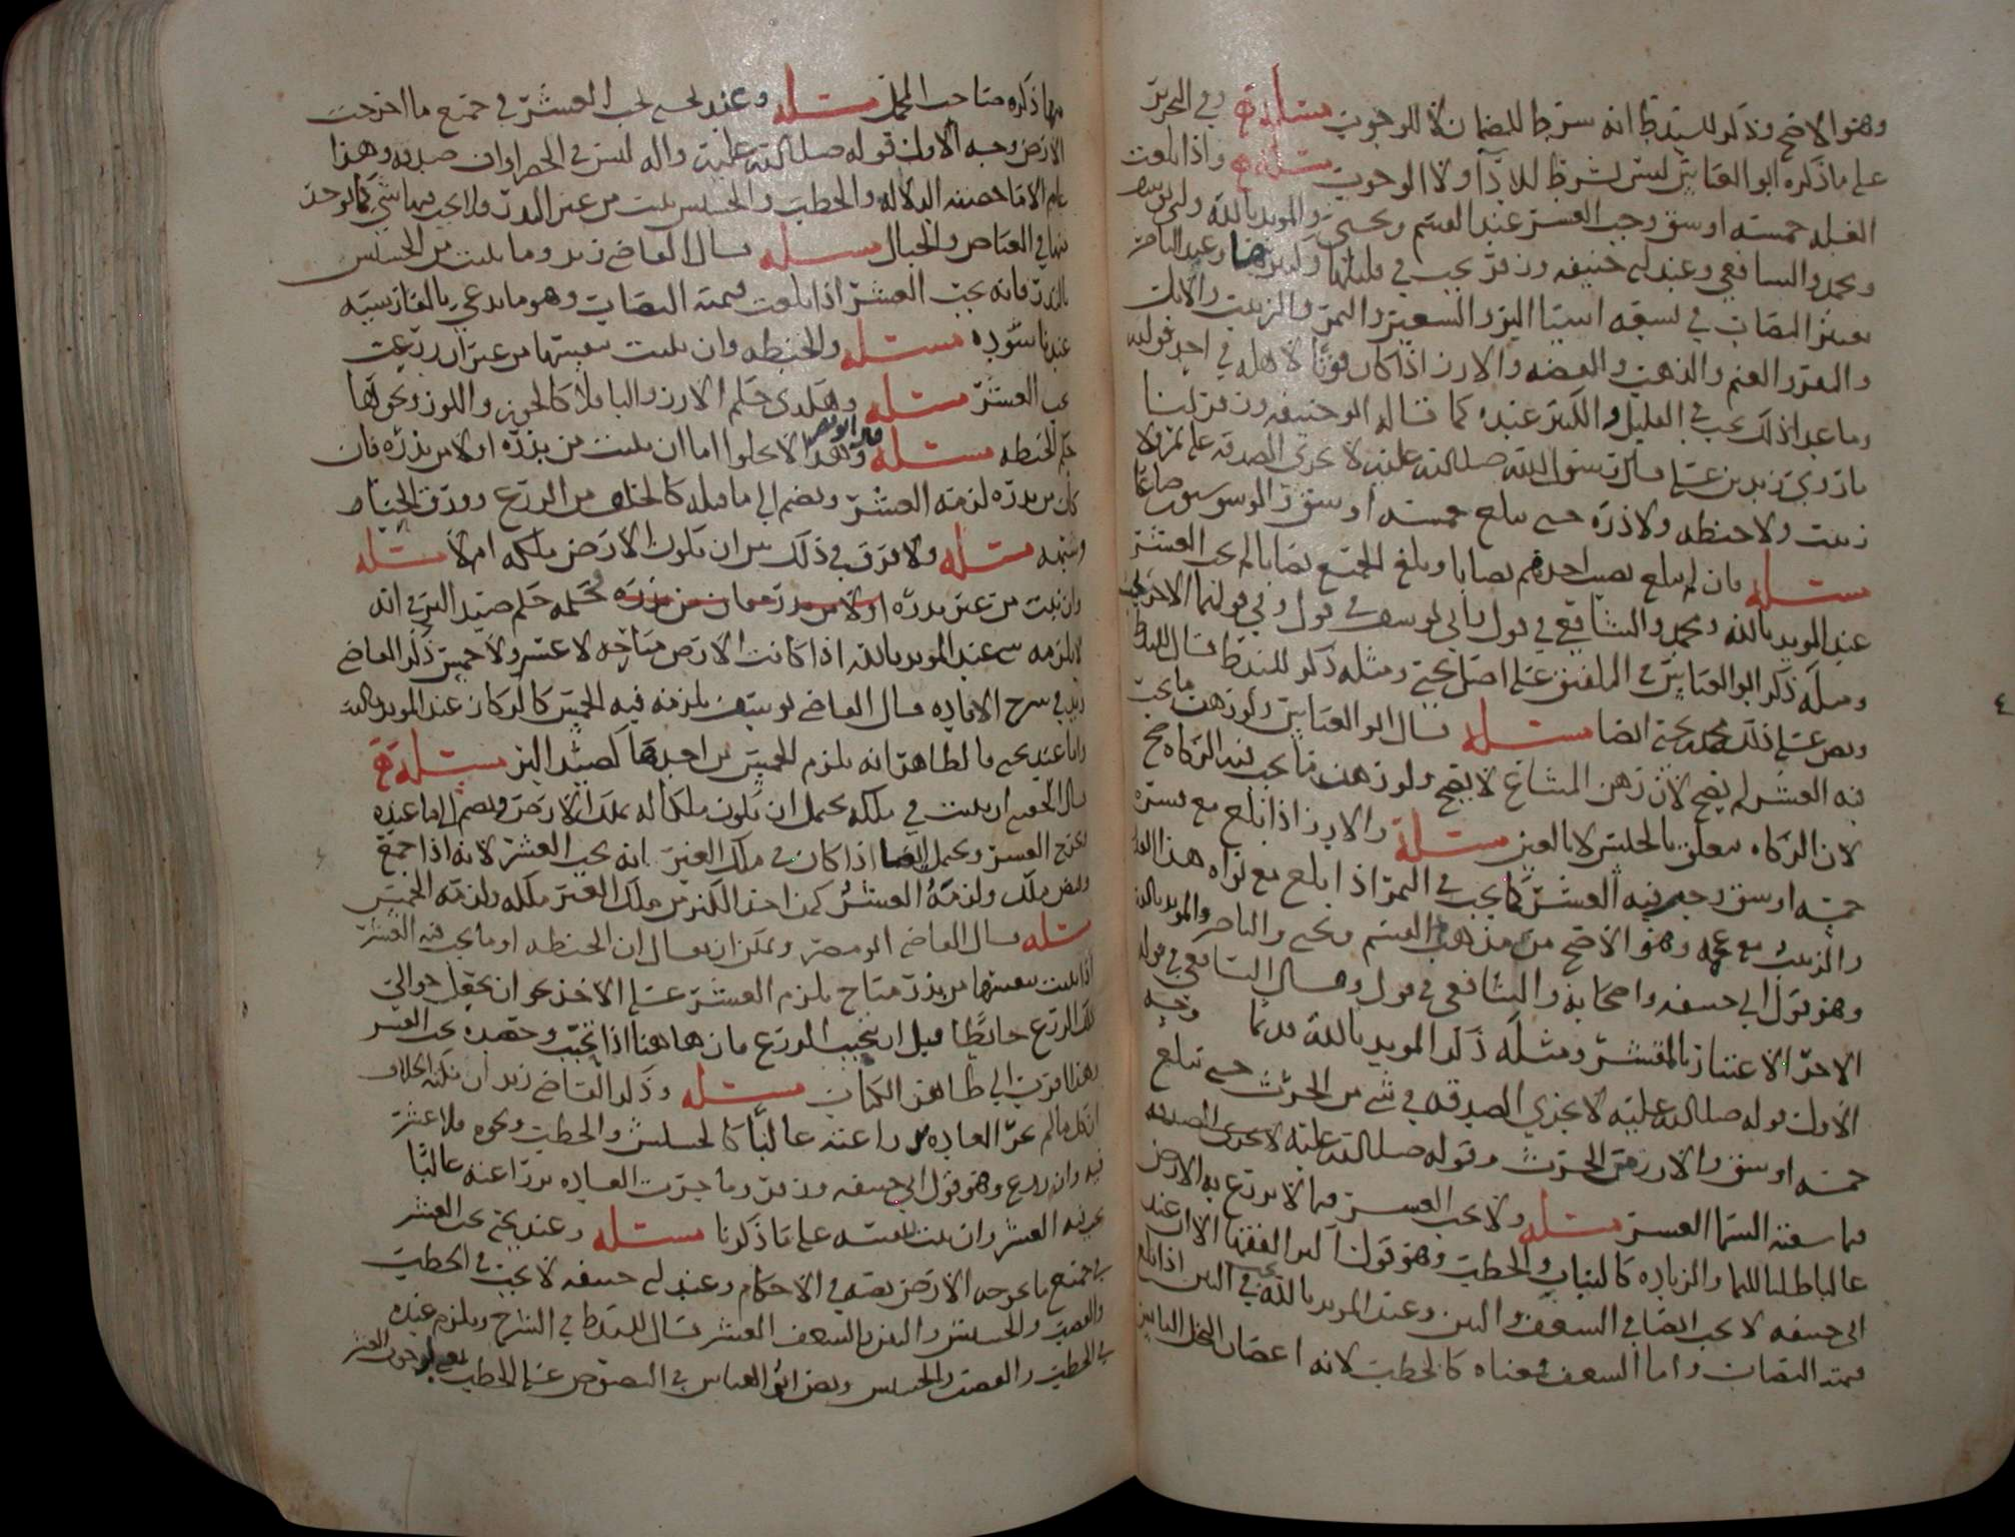 وهو الاصح وذكر للسيد ط انه شرط للضمان لا للوجوب مسئلة ح وفي التحرير
على ما ذكره ابو العباس ليس بشرط للاداء ولا الوجوب مسئلة ح واذا بلغت
الغله خمسه اوسق وجب العشر عند القسم ويحيى والمويد بالله وابي يوسف
ومحمد والشافعي وعند ابي حنيفه وزفر يجب في قليلها وكثيرها وعند الناصر
يعتبر النصاب في تسعه اشيا البر والشعير والتمر والزبيب والابل
والبقر والغنم والذهب والفضه والارز اذا كان قوتا لاهله في احد قوليه
وما عدا ذلك يجب في القليل والكثير عنده كما قاله ابو حنيفه وزفر لنا
ما روى زيد بن علي قال رسول الله صلى الله عليه لا تجزي الصدقه على تمر ولا
زبيب ولا حنطه ولا ذره حتى يبلغ خمسه اوسق والوسق ستون صاعا
مسئله فان لم يبلغ نصيب احدهم نصابا ويبلغ الجميع نصابا لم يجب العشر
عند المويد بالله ومحمد والشافعي في قول وابي يوسف في قول وفي قولهما الاخر يجب
ومثله ذكر ابو العباس في الملفق على اصل يحيى ومثله ذكر للسيد ط قال للسيد ط
ونص على ذلك محمد بن يحيى ايضا مسئله قال ابو العباس ولو رهن ما يجب
فيه العشر لم يصح لان رهن المشاع لا يصح ولو رهن ما يجب فيه الزكاه صح
لان الزكاه تتعلق بالجنس لا بالعين مسئلة والارز اذا بلغ مع قشره
خمسه اوسق وجب فيه العشر كما يجب في التمر اذا بلغ مع نواه هذا القدر
والزبيب مع عجمه وهو الاصح من مذهب القسم ويحيى والناصر والمويد بالله
وهو قول ابي حنيفه واصحابه والشافعي في قول وقال الشافعي في قوله
الاخر الاعتبار بالمقشر ومثله ذكر المويد بالله قديما وجه
الاول قوله صلى الله عليه لا تجزي الصدقه في شي من الحرث حتى تبلغ
خمسه اوسق والارز من الحرث وقوله صلى الله عليه لا تجزي الصدقه
فيما سقته السما العشر مسئله ولا يجب العشر فيما لا يزرع به الارض
غالبا طلبا للنما والزياده كالنبات والحطب وهو قول اكثر الفقها الا ان عند
ابي حنيفه لا يجب ايضا في السعف والتبن وعند المويد بالله يجب في التبن اذا بلغ
قيمته النصاب واما السعف فمعناه كالحطب لانه اغصان النخل اليابس
فيما ذكره صاحب المجمل مسئله وعند يحيى يجب العشر في جميع ما اخرجت
الارض وجه الاول قوله صلى الله عليه واله ليس في الخضراوات صدقه وهذا
عام الا ما خصته الدلاله والحطب والحشيش ينبت من غير البذر فلا يجب فيها شي كما لو وجد
نباتها في الغياض والجبال مسئله قال القاضي زيد وما ينبت من الحشيش
بالبذر فانه يجب العشر اذا بلغت قيمته النصاب وهو ما يدعى بالفارسيه
عندنا شوده مسئله والحنطه وان نبتت بنفسها من غير ان زرعت
يجب العشر مسئله وهكذى حكم الارز والباقلا كالجوز واللوز ونحو لها
حكم الحنطه مسئله قال ابو نصر وهذا لا يخلوا اما ان نبتت من بذره او لا من بذره فان
كان من بذره لزمه العشر ويضم الى ما قبله كالخلف من الزرع وورق الحنا
وشبهه مسئله ولا فرق في ذلك بين ان تكون الارض ملكه ام لا مسئله
وان نبتت من غير بذره او لا من بذر فان من بذره فحكمه حكم صيد البر في انه
لا يلزمه شي عند المويد بالله اذا كانت الارض مباحه لا عشر ولا خمس ذكر القاضي
زيد في شرح الافاده قال القاضي يوسف يلزمه فيه الخمس كالركاز عند المويد بالله
واما عند يحيى فالظاهر انه يلزم الخمس من اخذها كصيد البر مسئلة ح
قال الحقيني ان نبتت في ملكه يحتمل ان تكون ملكا له بملك الارض ويضم الى ما عنده
يخرج العشر ويحتمل ايضا اذا كان في ملك الغير انه يجب العشر لانه اذا جمع
وقبض ملك ولزمه العشر كمن اخذ الكنز من ملك الغير ملكه ولزمه الخمس
مسئله قال القاضي ابو مضر ويمكن ان يقال ان الحنطه او ما يجب فيه العشر
اذا نبتت بنفسها من بذر مباح يلزم العشر على الاخذ نحو ان يجعل حوالي
تلك الزرع حائطا قبل ان يجب الزرع فان هاهنا اذا تحبب وحصده يجب العشر
وهذا اقرب الى ظاهر الكتاب مسئله وذكر القاضي زيد ان نكته الخلاف
ان كل ما لم تجر العاده بزراعته غالبا كالحشيش والحطب ونحوه فلا عشر
فيه وان زرع وهو قول ابي حنيفه وزفر وما جرت العاده بزراعته غالبا
يجب فيه العشر وان نبت بنفسه على ما ذكرنا مسئله وعند يحيى يجب العشر
في جميع ما تخرجه الارض نصه في الاحكام وعند ابي حنيفه لا يجب في الحطب
والقصب والحشيش والتبن والسعف العشر قال للسيد ط في الشرح ويلزم عنده
في الحطب والقصب والحشيش ونص ابو العباس في النصوص على الحطب نص لوجوب العشر